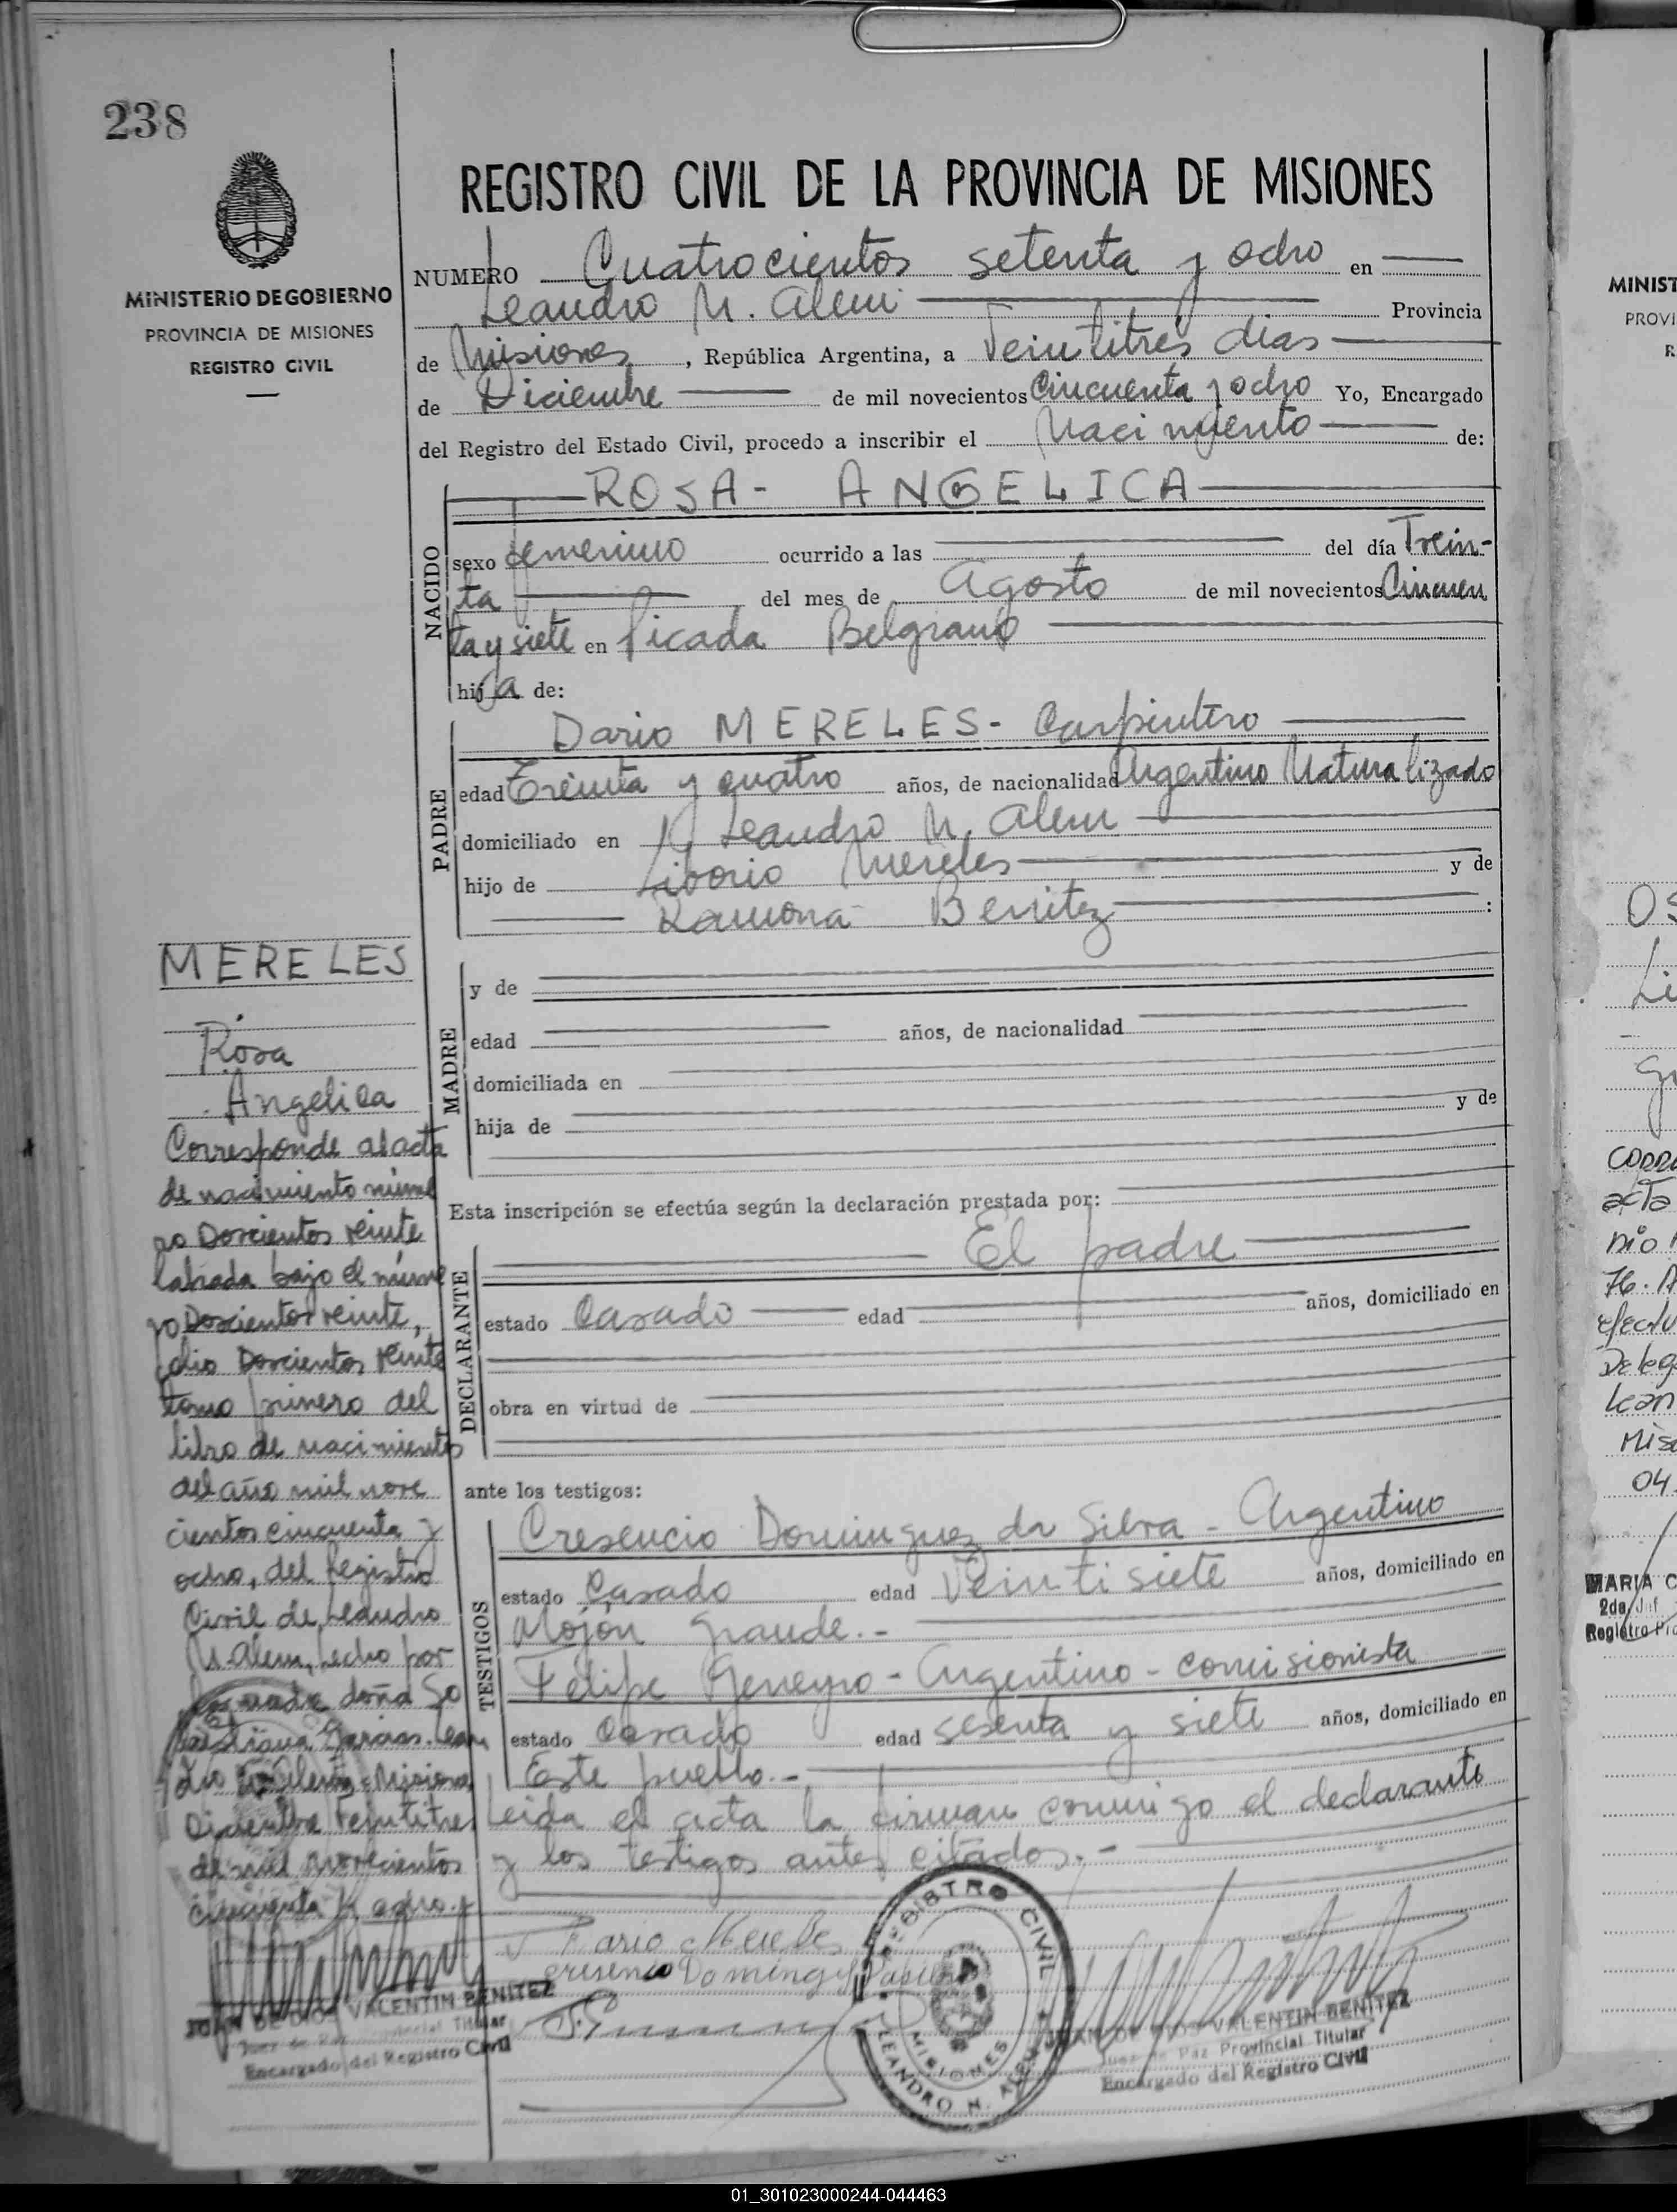 238
MINISTERIO DE GOBIERNO
PROVINCIA DE MISIONES
REGISTRO CIVIL
REGISTRO CIVIL DE LA PROVINCIA DE MISIONES
NUMERO Cuatrocientos setenta y ocho en
Leandro N. Alem Provincia
de Misiones, República Argentina, a Veintitrés dias
de Diciembre de mil novecientos Cincuenta y ocho Yo, Encargado
del Registro del Estado Civil, procedo a inscribir el Nacimiento de:
ROSA - ANGELICA
NACIDO
sexo femenino ocurrido a las del día Trein-
ta del mes de Agosto de mil novecientos Cincuen
ta y siete en Picada Belgrano
hija de:
PADRE
Dario MERELES - Carpintero
edad Treinta y cuatro años, de nacionalidad Argentino Naturalizado
domiciliado en Leandro N. Alem
hijo de Liborio Mereles y de
Ramona Benitez :
MADRE
y de
edad años, de nacionalidad
domiciliada en
hija de y de
Esta inscripción se efectúa según la declaración prestada por:
DECLARANTE
El padre
estado Casado edad años, domiciliado en
obra en virtud de
ante los testigos:
TESTIGOS
Cresencio Dominguez da Silva - Argentino
estado Casado edad Veintisiete años, domiciliado en
Mojón Grande.-
Felipe - Argentino - comisionista
estado Casado edad sesenta y siete años, domiciliado en
Este pueblo.-
Leida el acta la firman conmigo el declarante
y los testigos antes citados.-
MERELES
Rosa
Angelica
Corresponde al acta
de nacimiento núme
ro Doscientos veinte
labrada bajo el núme
ro Doscientos veinte,
folio Doscientos veinte
tomo primero del
libro de nacimientos
del año mil nove
cientos cincuenta y
ocho, del Registro
Civil de Leandro
N. Alem, hecho por
madre doña
Garcias. Lean
dro N. Alem, Misiones
Diciembre Veintitres
de mil novecientos
cincuenta y ocho.-
Dario Mereles
REGISTRO CIVIL
MISIONES
LEANDRO N. ALEM
JUAN DE DIOS VALENTIN BENITEZ
Juez de Paz Provincial Titular
Encargado del Registro Civil
JUAN DE DIOS VALENTIN BENITEZ
Juez de Paz Provincial Titular
Encargado del Registro Civil
MINIST
PROVI
R
OS
Li
CORR
acta
nio
76. A
efectu
Deleg
Lean
Mis
04
MARIA C
2da. Jef
Registro Pro
01_301023000244-044463